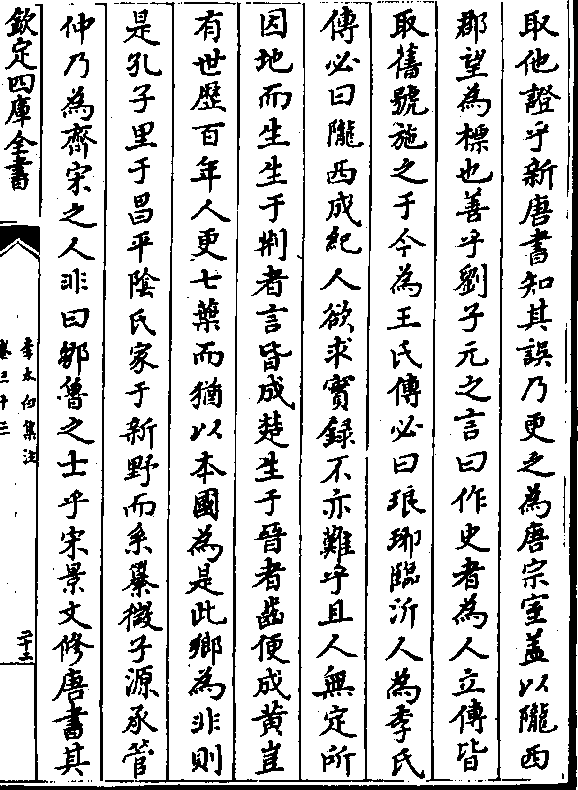 取他證乎新唐書知其誤乃更之為唐宗室蓋以隴西
郡望為標也善乎劉子元之言曰作史者為人立傳皆
取舊號施之于今為王氏傳必曰琅琊臨沂人為李氏
傳必曰隴西成紀人欲求實録不亦難乎且人無定所
因地而生生于荆者言皆成楚生于晉者齒便成黄豈
有世歴百年人更七葉而猶以本國為是此鄉為非則
是孔子里于昌平陰氏家于新野而系纂微子源承管
仲乃為齊宋之人非曰鄒魯之士乎宋景文修唐書其
欽定四庫全書
李太白集注
卷三十三
二十二